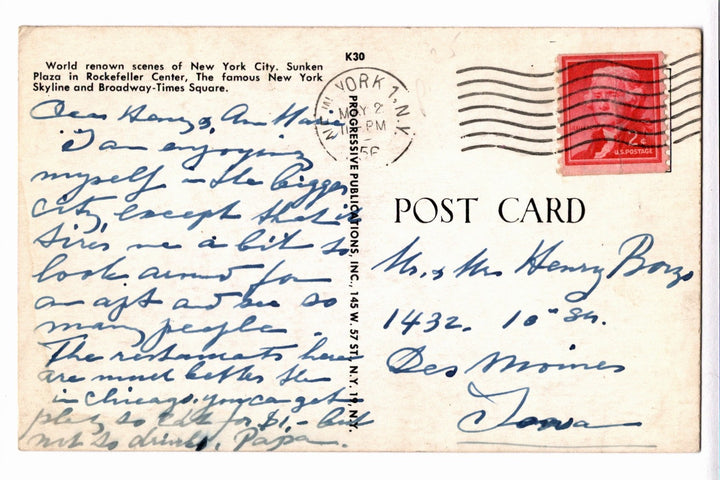 World renown scenes of New York City. Sunken
Plaza in Rockefeller Center, The famous New York
Skyline and Broadway-Times Square.
K30
Dear Henry & Ann Marie
I am enjoying
myself in the bigger
city, except that it
tires me a bit to
look around for
an apt and see so
many people.
The restaurants here
are much better the
in Chicago. you can get
plenty so for $1,- but
not so drinks, Papa.
PROGRESSIVE PUBLICATIONS, INC., 145 W. 57 ST. N.Y. 19, N.Y.
NEW YORK 1, N.Y.
MAY 2
PM
56
2¢
U.S. POSTAGE
POST CARD
Mr. & Mrs Henry
1432. 10" St.
Des Moines
Iowa